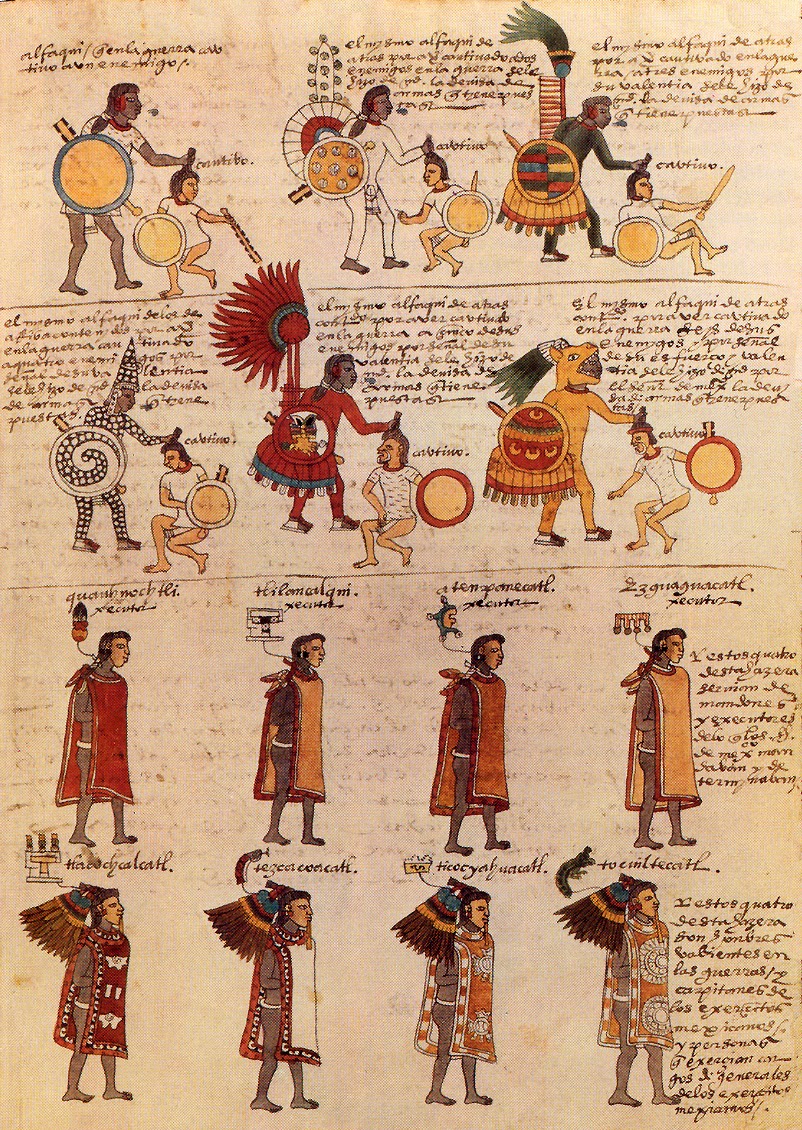 alfaqui / q̃ en la guerra cau
tivo a un enemigo /.
cautivo.
el mismo alfaqui de
atras por aver cautivado dos
enemigos en la guerra se le
la devisa de
armas q̃ tiene pues
tas
cautivo
el mismo alfaqui de atras
por a cautivado en la gue
rra / a tres enemigos / por
su valentia se le
la devisa de armas
q̃ tiene puestas
cautivo.
el mismo alfaqui de los de
en la guerra cautivado
a quatro enemigos por
de su valentia
la devisa
de armas q̃ tiene
puestas.
cautivo.
el mismo alfaqui de atras
por aver cautivado
en la guerra a cinco de sus
enemigos por señal de su
valentia se le
la devisa de
armas q̃ tiene
puestas
cautivo.
El mismo alfaqui de atras
por aver cautivado
en la guerra seys de sus
enemigos / y por señal
de su esfuerço / valen
tia se le
el señor de mexico la devi
sa de armas q̃ tiene pues
tas
cautivo
quauhnochtli.
xecutor
tlilancalqui.
xecutor
atenpanecatl.
xecutor
Ezguaguacatl.
xecutor
Y estos quatro
desta hazera
servian de
mandones
y executores
de lo q̃ los Sres.
de mexico man
davan y de
terminavan /
tlacochcalcatl.
tezcacoacatl.
ticocyahuacatl.
tocuiltecatl.
Y estos quatro
desta hazera
son honbres
valientes en
las guerras / y
capitanes de
los exercitos
mexicanos /
y personas
q̃ exercian car
gos de generales
de los exercitos
mexicanos /.